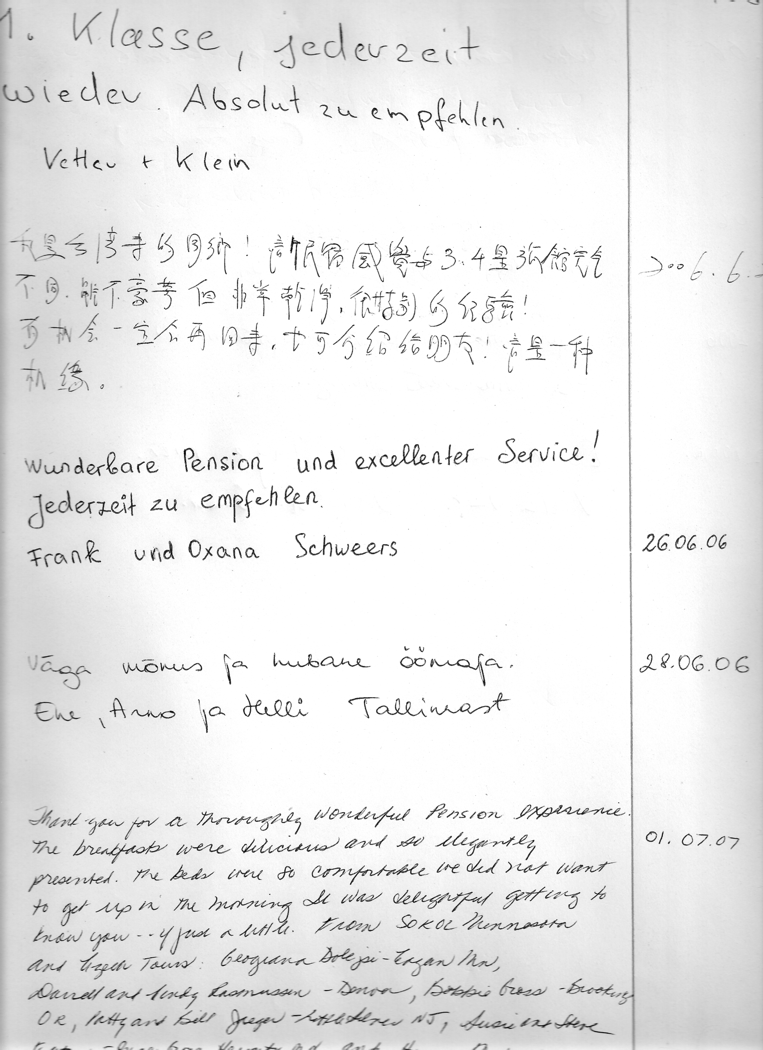 1. Klasse, jederzeit
wieder. Absolut zu empfehlen.
Vetter + Klein
我是台灣來的同鄉！這民宿感覺与3.4星旅館完全 2006.6.
不同.雖不豪華但非常乾淨,很特別的經驗!
有机会一定会再回來,也可介紹給朋友!這是一种
机緣。
Wunderbare Pension und excellenter Service!
Jederzeit zu empfehlen.
Frank und Oxana Schweers 26.06.06
Väga mõnus ja hubane öömaja. 28.06.06
Ene, Arno ja Helli Tallinnast
Thank-you for a thoroughly wonderful Pension experience. 01.07.07
The breakfasts were delicious and so elegantly
presented. The beds were so comfortable we did not want
to get up in the morning It was delightful getting to
know you -- if just a little. From SOKOL Minnesota
and Czech Tours: Georgiana Dolejsi - Eagan Mn,
Darrell and Cindy Rasmussen - , Bobbie - Brookings
OR, Patty and Bill - NJ, Susie and Steve